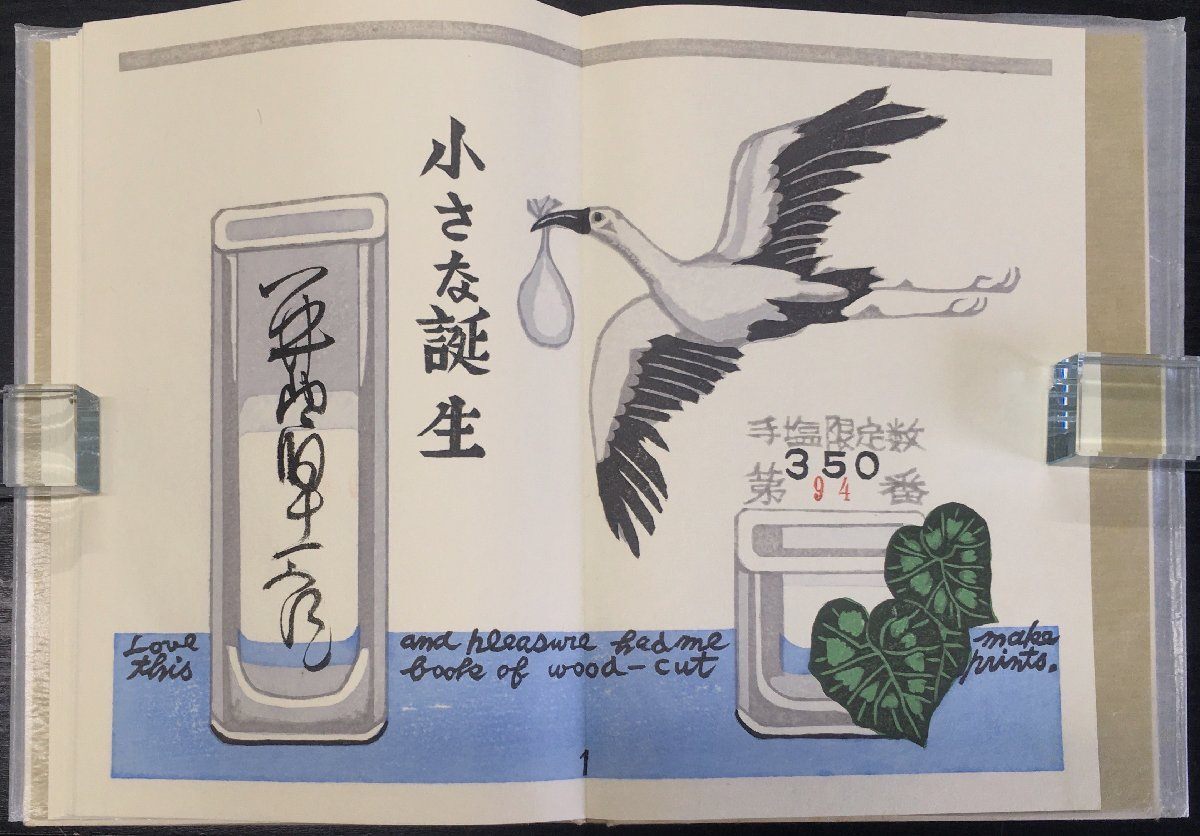 小さな誕生
手塩限定数
350
第 94 番
Love and pleasure had me make
this book of wood-cut prints.
1